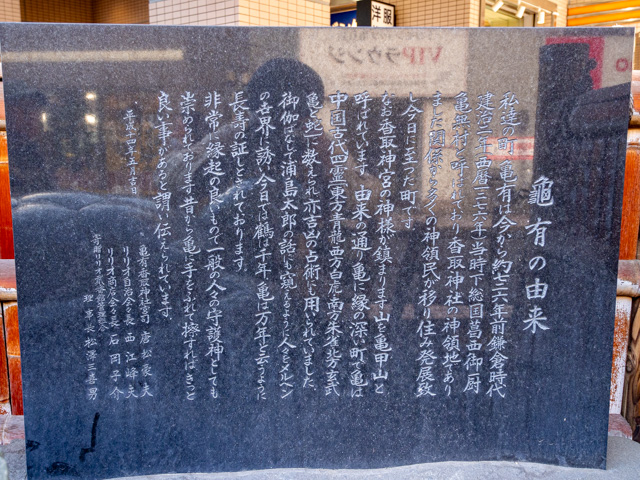 洋服
VIPラウンジ
龜有の由来
私達の町、亀有は今から約七二六年前鎌倉時代
建治二年西暦一二七六年当時下総国葛西御厨
亀無村と呼ばれており香取神社の神領地であり
また関係かなタ人の神領民が移り住み発展致
し今日に至った町です。
なお香取神宮の神様が鎮まります山を亀甲山と
呼ばれています。由来の通り亀に縁の深い町で亀は
中国古代四霊(東方青龍・西方白虎・南方朱雀・北方玄武
亀と蛇)に数えられ亦吉凶の占術に用いられていました。
御伽ばなし浦島太郎の話にも窺えるように人々をメルヘン
の世界に誘い今日では鶴は千年、亀は万年と云うように
長寿の証しとされております。
非常に縁起の良いもので一般の人々の守護神としても
崇められております。昔から亀に手をふれて擦すればきっと
良い事があると謂い伝えられています。
平成十四年五月吉日
亀有香取神社宮司 唐松義夫
リリオ自治会会長 西江峰夫
リリオ商店会会長 石岡子介
理事長 松澤三喜男